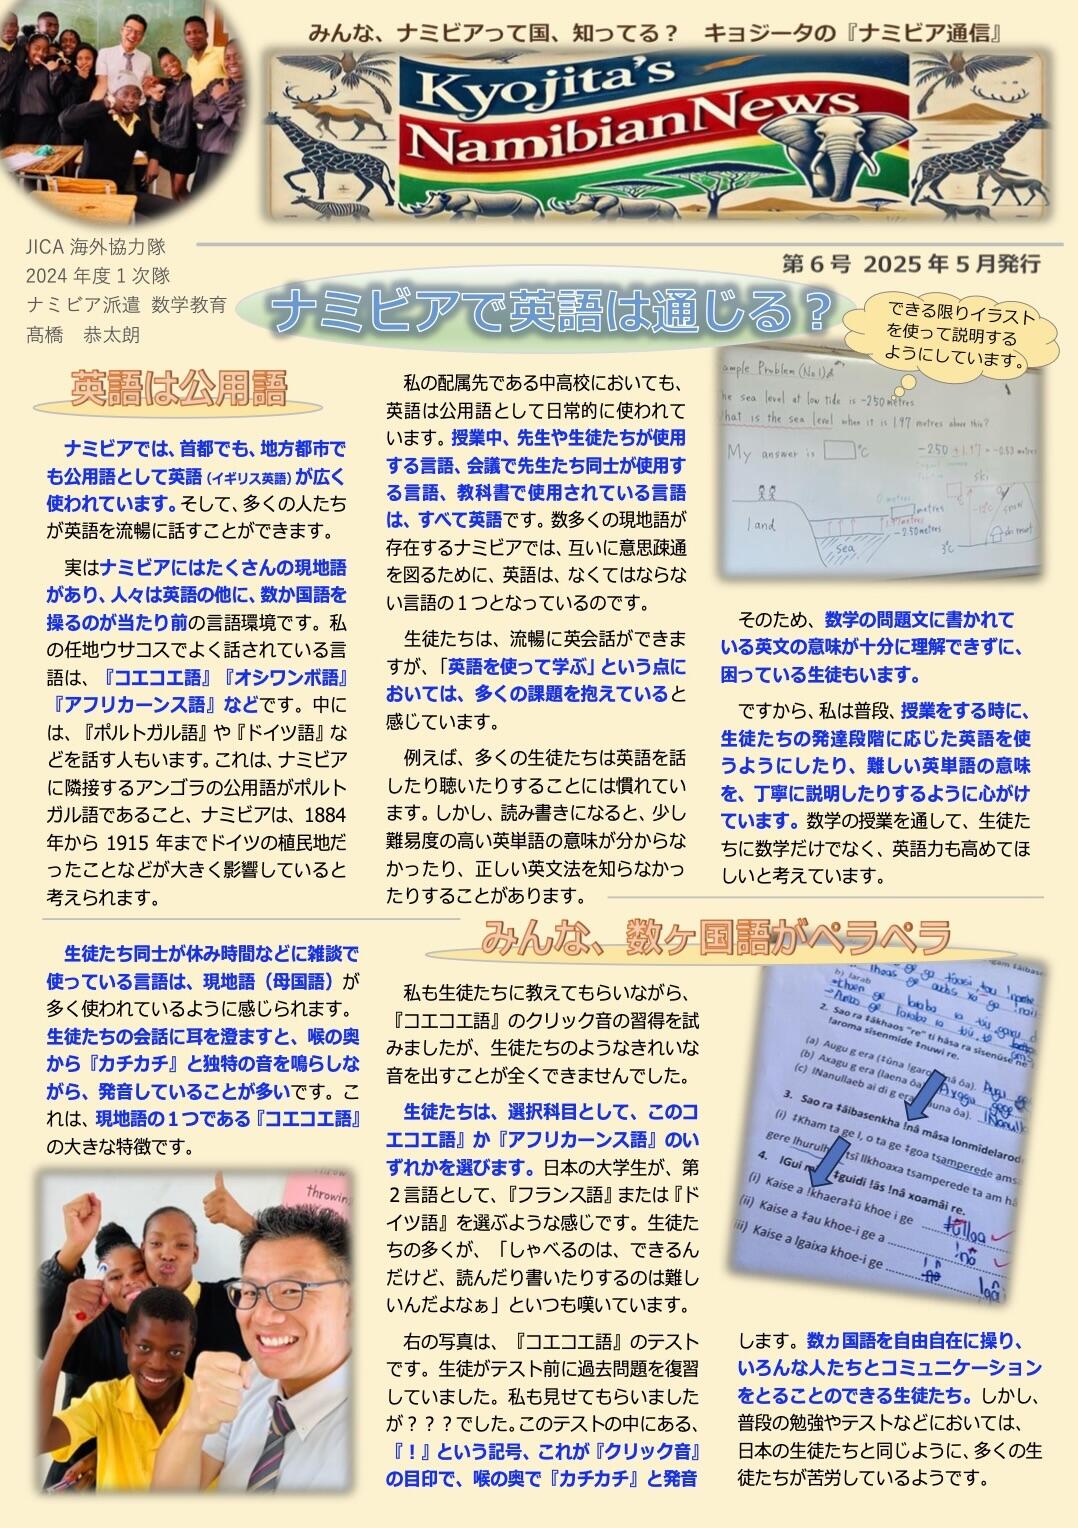 みんな、ナミビアって国、知ってる？　キョジータの『ナミビア通信』
Kyojita's
NamibianNews
JICA 海外協力隊
2024 年度 1 次隊
ナミビア派遣 数学教育
髙橋　恭太朗
第６号 2025 年 5 月発行
ナミビアで英語は通じる？
できる限りイラスト
を使って説明する
ようにしています。
英語は公用語
ナミビアでは、首都でも、地方都市で
も公用語として英語（イギリス英語）が広く
使われています。そして、多くの人たち
が英語を流暢に話すことができます。
実はナミビアにはたくさんの現地語
があり、人々は英語の他に、数か国語を
操るのが当たり前の言語環境です。私
の任地ウサコスでよく話されている言
語は、『コエコエ語』『オシワンボ語』
『アフリカーンス語』などです。中に
は、『ポルトガル語』や『ドイツ語』な
どを話す人もいます。これは、ナミビア
に隣接するアンゴラの公用語がポルト
ガル語であること、ナミビアは、1884
年から 1915 年までドイツの植民地だ
ったことなどが大きく影響していると
考えられます。
私の配属先である中高校においても、
英語は公用語として日常的に使われて
います。授業中、先生や生徒たちが使用
する言語、会議で先生たち同士が使用す
る言語、教科書で使用されている言語
は、すべて英語です。数多くの現地語が
存在するナミビアでは、互いに意思疎通
を図るために、英語は、なくてはならな
い言語の１つとなっているのです。
生徒たちは、流暢に英会話ができま
すが、「英語を使って学ぶ」という点に
おいては、多くの課題を抱えていると
感じています。
例えば、多くの生徒たちは英語を話
したり聴いたりすることには慣れてい
ます。しかし、読み書きになると、少し
難易度の高い英単語の意味が分からな
かったり、正しい英文法を知らなかっ
たりすることがあります。
ample Problem (No.1)
he sea level at low tide is -250 metres
hat is the sea level when it is 1.97 metres above this?
My answer is ℃
-250 ± 1.97 = -0.53 metres
0 metres
metres
1.97 metres
-2.50 metres
land
sea
ski
snow
3℃
そのため、数学の問題文に書かれて
いる英文の意味が十分に理解できずに、
困っている生徒もいます。
ですから、私は普段、授業をする時に、
生徒たちの発達段階に応じた英語を使
うようにしたり、難しい英単語の意味
を、丁寧に説明したりするように心がけ
ています。数学の授業を通して、生徒た
ちに数学だけでなく、英語力も高めてほ
しいと考えています。
みんな、数ヶ国語がペラペラ
生徒たち同士が休み時間などに雑談で
使っている言語は、現地語（母国語）が
多く使われているように感じられます。
生徒たちの会話に耳を澄ますと、喉の奥
から『カチカチ』と独特の音を鳴らしな
がら、発音していることが多いです。こ
れは、現地語の１つである『コエコエ語』
の大きな特徴です。
throwing
私も生徒たちに教えてもらいながら、
『コエコエ語』のクリック音の習得を試
みましたが、生徒たちのようなきれいな
音を出すことが全くできませんでした。
生徒たちは、選択科目として、このコ
エコエ語』か『アフリカーンス語』のい
ずれかを選びます。日本の大学生が、第
２言語として、『フランス語』または『ド
イツ語』を選ぶような感じです。生徒た
ちの多くが、「しゃべるのは、できるん
だけど、読んだり書いたりするのは難し
いんだよなぁ」といつも嘆いています。
右の写真は、『コエコエ語』のテスト
です。生徒がテスト前に過去問題を復習
していました。私も見せてもらいました
が？？？でした。このテストの中にある、
『！』という記号、これが『クリック音』
の目印で、喉の奥で『カチカチ』と発音
b) Iarab
2. Sao ra ǂâkhaos "re" ti hâsa ra sisenūse
Iaroma sîsenmîde ǂnuwi re.
(a) Augu g era
(b) Axagu g era (Iaena ôa).
(c) INanullaeb ai di g era
3. Sao ra ǂâibasenkha !nâ mâsa Ionmîdelarode
(i) ǂKham ta ge I, o ta ge ǂgoa tsamperede
gere Ihurulh tsî IIkhoaxa tsamperede ta am
4. IGui ǂguidi !âs !nâ xoamâi re.
(i) Kaise a !khaeraǂū khoe i ge
(ii) Kaise a ǂau khoe-i ge a
iii) Kaise a Igaixa khoe-i ge
します。数ヵ国語を自由自在に操り、
いろんな人たちとコミュニケーション
をとることのできる生徒たち。しかし、
普段の勉強やテストなどにおいては、
日本の生徒たちと同じように、多くの生
徒たちが苦労しているようです。